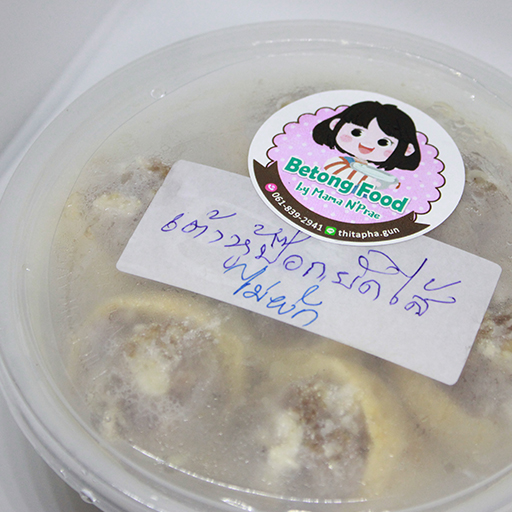 Betong Food
by Mama N'Prae
061-839-2941 thitapha.gun
เต้าหู้หมึกยัดไส้
ไม่ผัก